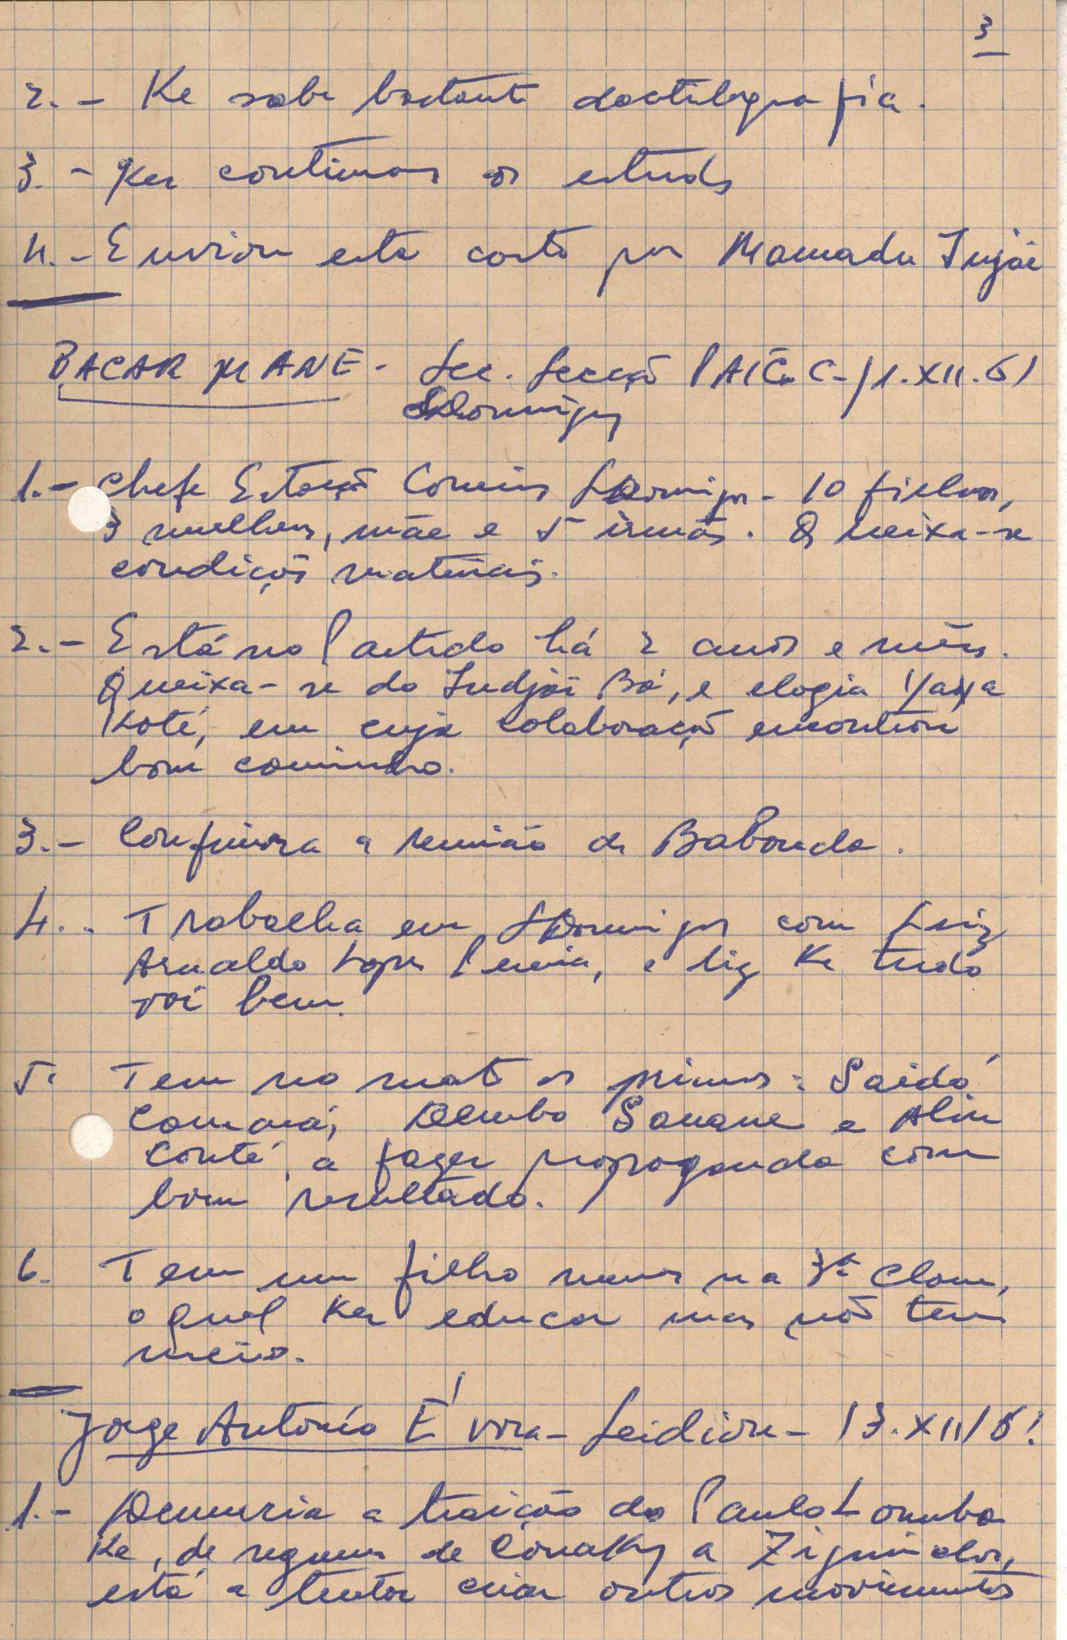 3
2.- Ke sabe bastante dactilografia.
3.- Ker continuar os estudos
4.- Enviou esta carta por Mamadu Injai
BACAR MANE - Sec. Secção PAIGC - 1.XII.61
S Domingos
1.- Chefe Estação Correios S Domingos - 10 filhos,
3 mulheres, mãe e 5 irmãos. Queixa-se
condições materiais.
2.- Está no Partido há 2 anos e mês.
Queixa-se do Indjai Bá, e elogia Yaya
Koté, em cuja colaboração encontrou
bom caminho.
3.- Confirma a reunião de Babonda.
4.- Trabalha em S Domingos com Luiz
Arnaldo Lopes Pereira, e diz Ke tudo
vai bem.
5. Tem no mato os primos: Saidó
Camará, Dembo Sanane e Alin
Conté, a fazer propaganda com
bom resultado.
6. Tem um filho menor na 3ª classe,
o qual Ker educar mas não tem
meios.
Jorge António Évora - Seidiou - 13.XII/61
1.- Denuncia a traição do Paulo Lomba
Ke, de regresso de Conakry a Ziguinchor,
está a tentar criar outros movimentos